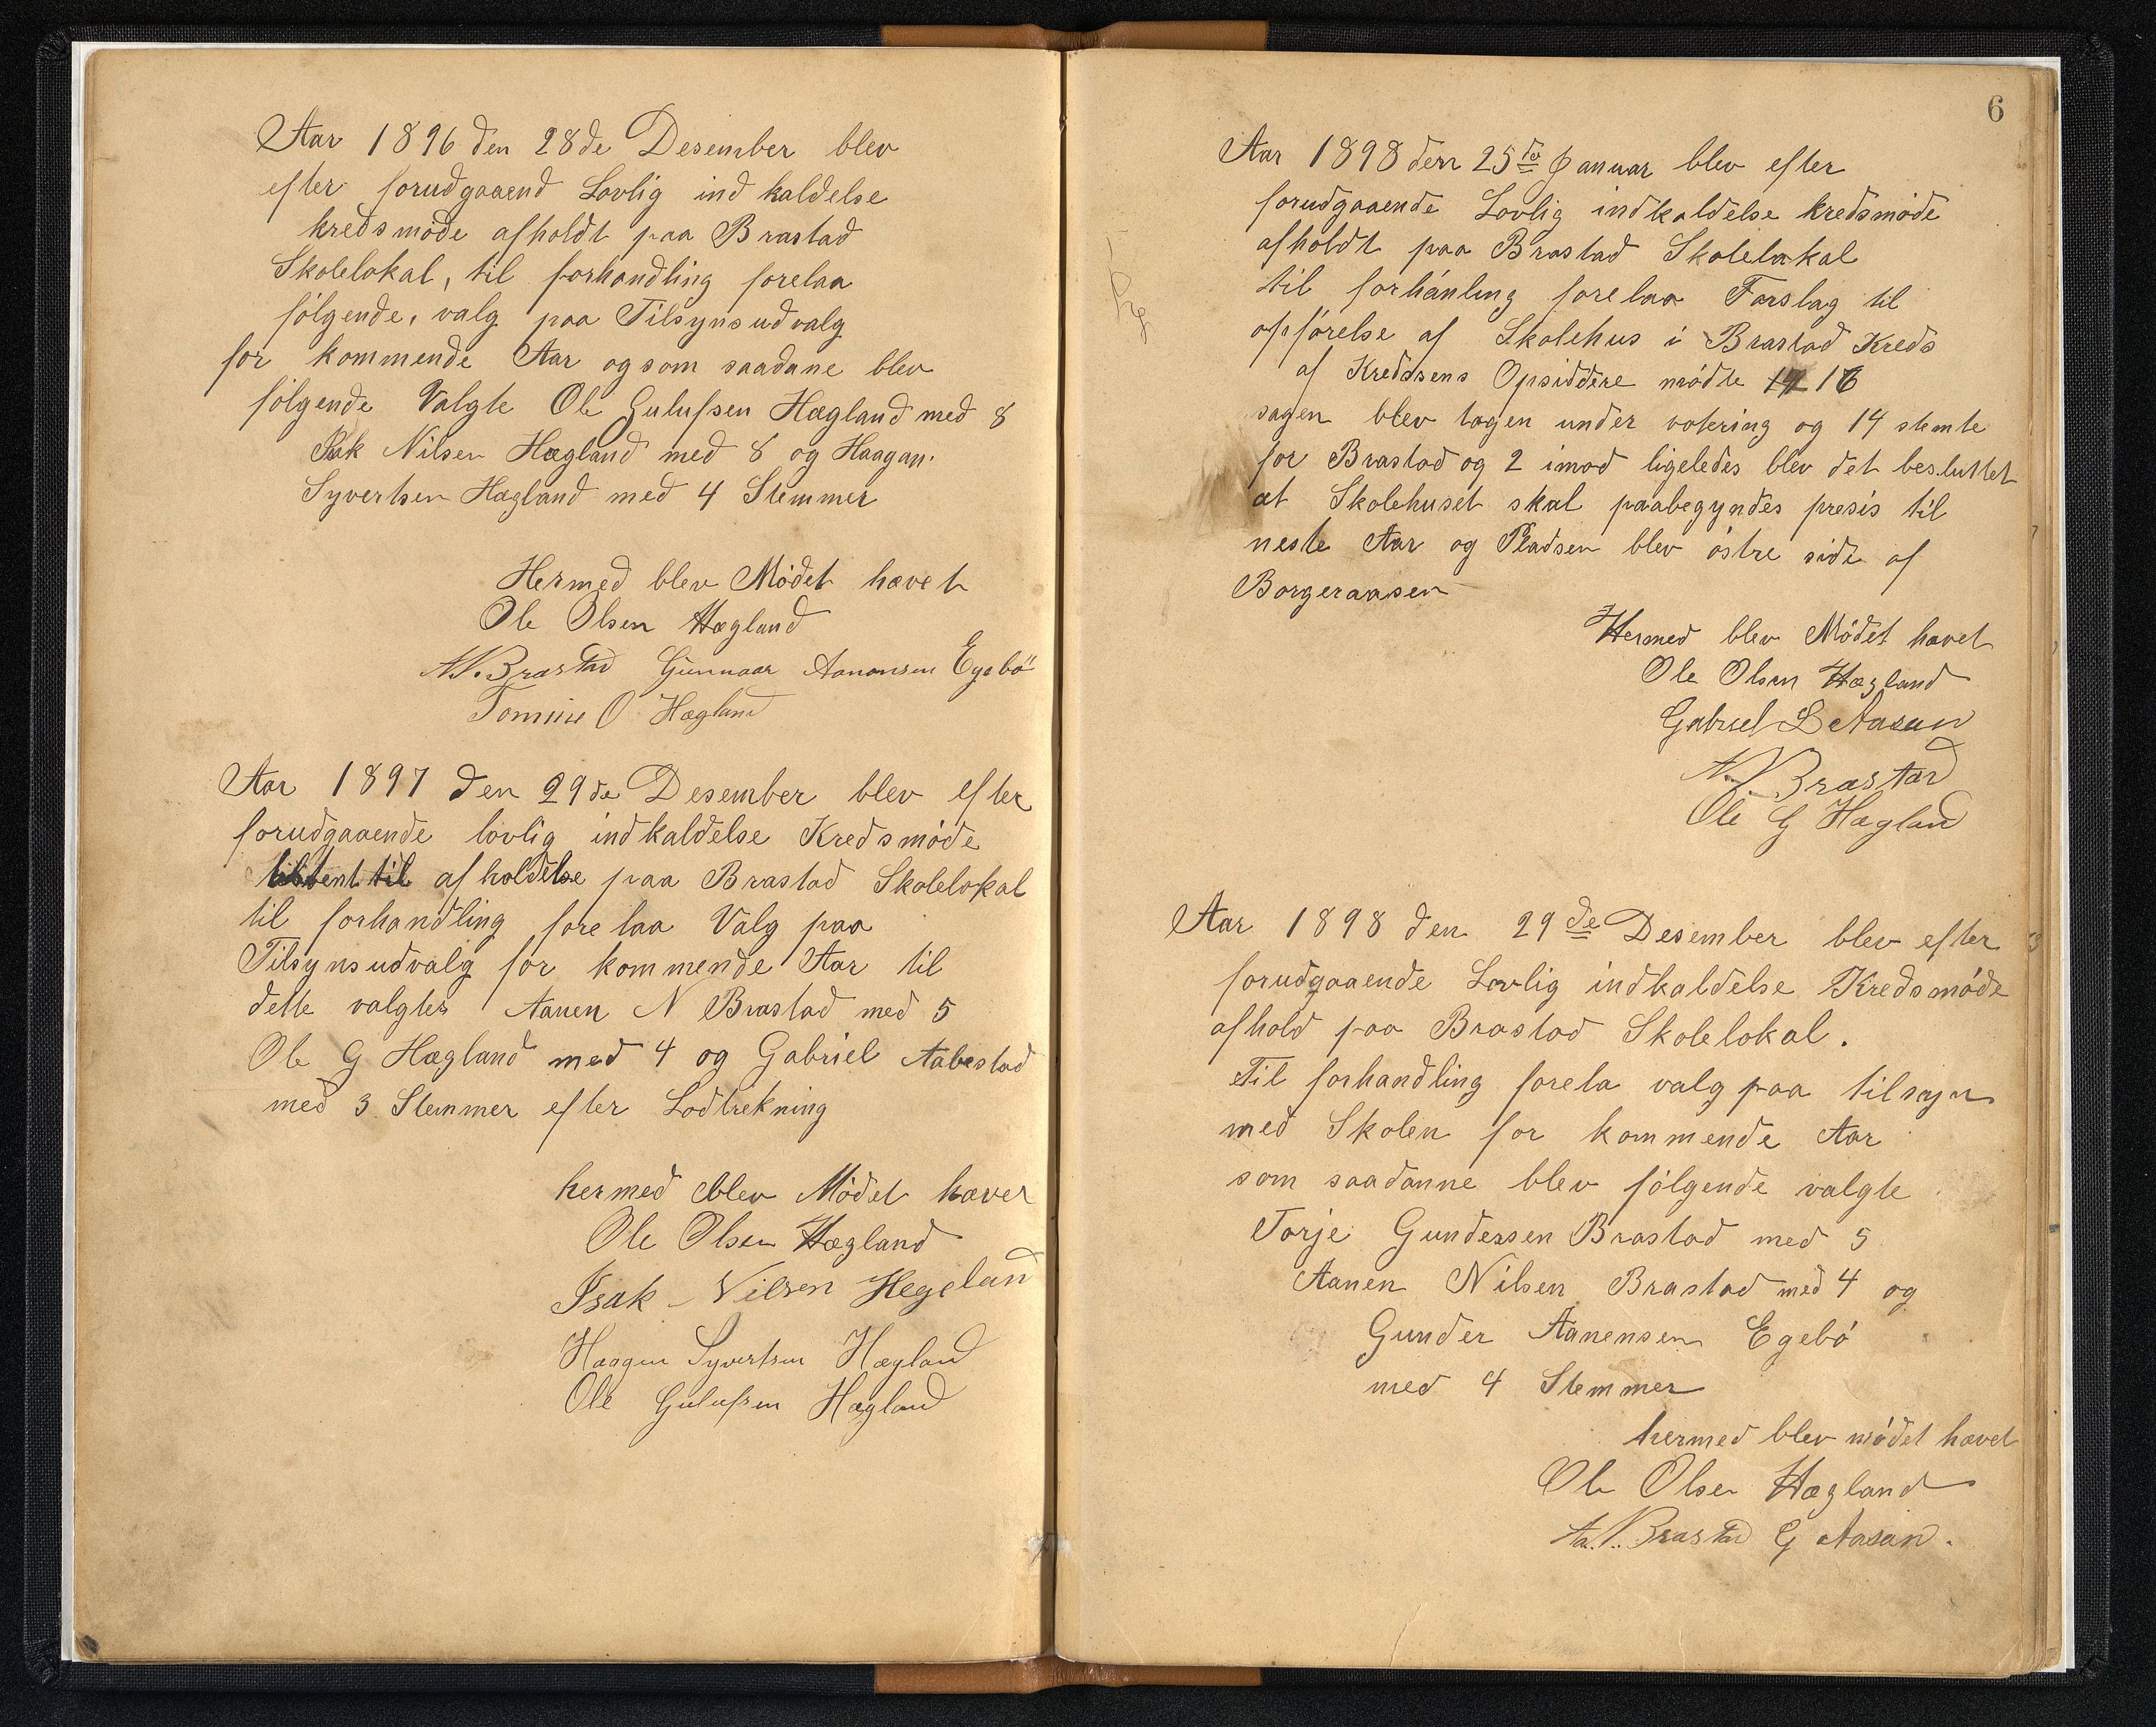 Aar 1896 den 28de Desember blev
efter forudgaaend Lovlig ind kaldelse
kredsmøde afholdt paa Brastad
Skolelokal, til forhandling forelaa
følgende, valg paa Tilsynsudvalg
for kommende Aar og som saadane blev
følgende Valgte Ole Gulufsen Hægland med 8
Isak Nilsen Hægland med 8 og Haagan
Syvertsen Hægland med 4 Stemmer
Hermed blev Mødet hævet
Ole Olsen Hægland
N. Brastad Gunnaar Aanonsen Egebø
Tomine O Hægland
Aar 1897 den 29de Desember blev efter
forudgaaende lovlig indkaldelse Kredsmøde
til afholdelse paa Brastad Skolelokal
til forhandling fore laa Valg paa
Tilsynsudvalg for kommende Aar til
dette valgtes Aanen N Brastad med 5
Ole G Hægland med 4 og Gabriel Aabestad
med 3 Stemmer efter Lodtrekning
hermed blev Mødet hæver
Ole Olsen Hægland
Isak Nilsen Hegeland
Haagen Syvertsen Hægland
Ole Gulufsen Hægland
6
Aar 1898 den 25de Januar blev efter
forudgaaende Lovlig indkaldelse kredsmøde
afholdt paa Brastad Skolelokal
til forhánling forelaa Forslag til
opførelse af Skolehus i Brastad Kreds
af Kredssens Opsiddere mødte 16
sagen blev tagen under votering og 14 stemte
for Brastad og 2 imod ligeledes blev det besluttet
at Skolehuset skal paabegyndes presis til
neste Aar og Pladsen blev østre side af
Borgeraasen
Hermed blev Mødet hævet
Ole Olsen Hægland
Gabriel L Aasan
N. Brastad
Ole G Hægland
Aar 1898 den 29de Desember blev efter
forudgaaende Lovlig indkaldelse Kredsmøde
afhold paa Brastad Skolelokal.
Til forhandling forela valg paa tilsyn
med Skolen for kommende Aar
som saadanne blev følgende valgte
Torje Gundersen Brastad med 5
Aanen Nilsen Brastad med 4 og
Gunder Aanensen Egebø
med 4 Stemmer
hermed blev mødet hævet
Ole Olsen Hægland
Aa. N. Brastad G Aasan.